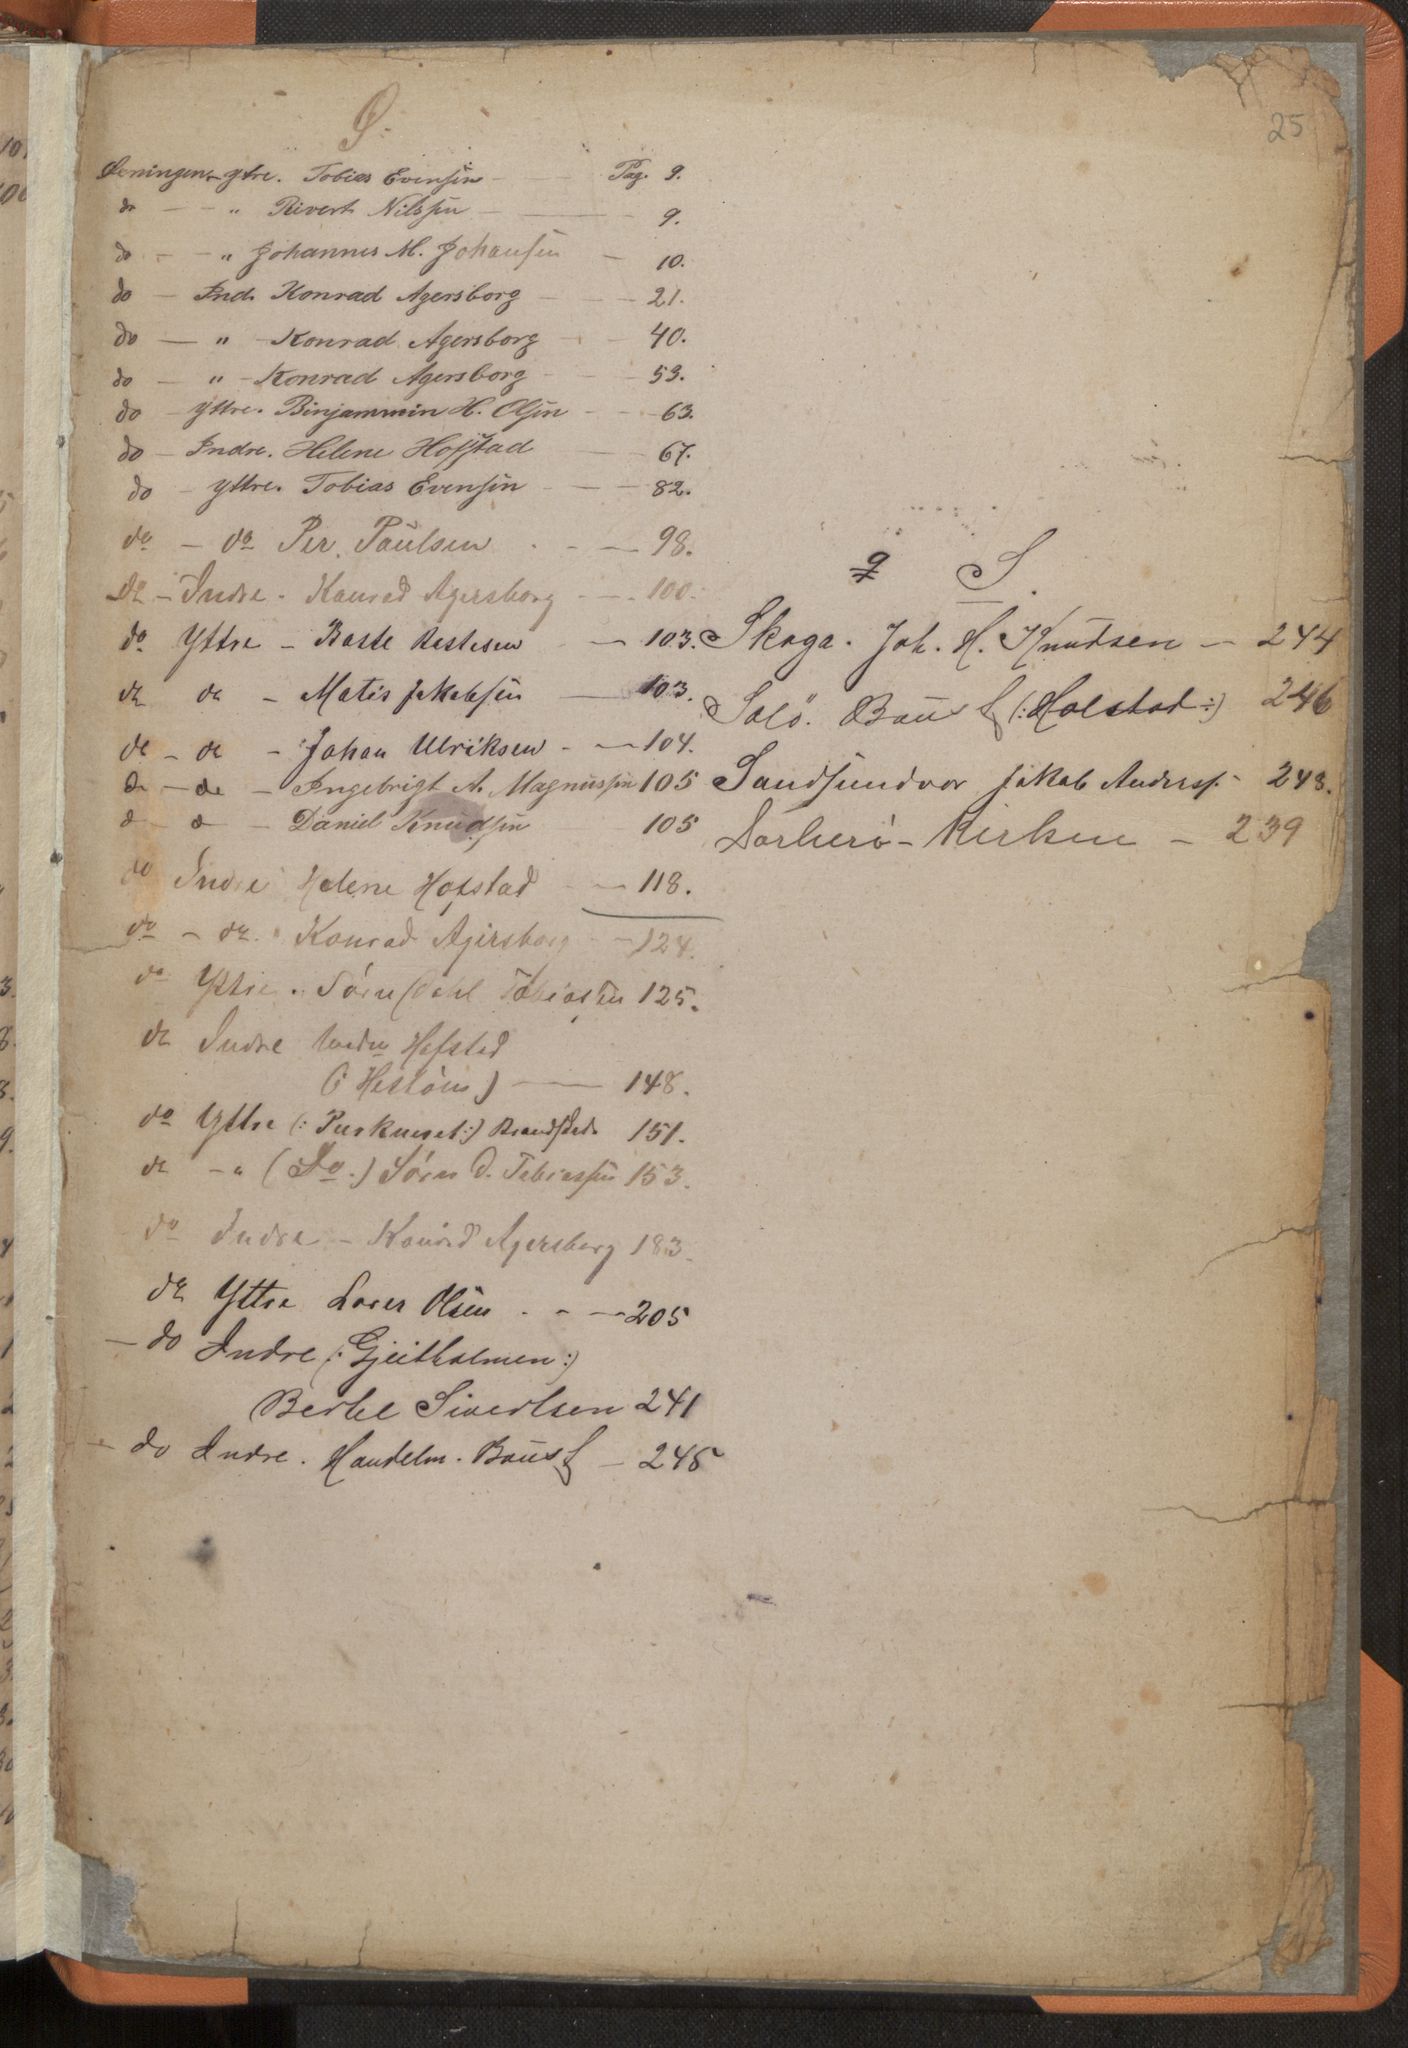 25
Ø:
Øeningen ytre. Tobias Evensen — Pag. 9.
do — — " Rivert Nilssen — 9.
do - - " Johannes M. Johansen — 10.
do — Ind. Konrad Agersborg — 21.
do — " - Konrad Agersborg — 40.
do — " - Konrad Agersborg — 53.
do — yttre. Binjammin H. Olsen — 63.
do — Indre. Helene Hofstad — 67.
do - yttre. Tobias Evensen — 82.
do - do Per. Paulsen — 98.
do - Indre. Konrad Agersborg — 100.
do Yttre - — 103.
do do - Matis Jakobsen — 103.
do - do - Johan Ulriksen — 104.
do - do - Ingebrigt A. Magnussen 105
do - do - Daniel Knudsen 105
do Indre Helene Hofstad — 118.
do - do. Konrad Agersborg — 124.
do Yttre. Sørn Dahl Tobiassen 125.
do Indre Hofstad
— 148.
do Yttre (: :) 151.
do - " (Do.) Sørn D. Tobiassen 153.
do Indre - Konrad Agersborg 183.
do Yttre Olsen . - — 205
— do Indre (: Gjeitholmen :)
Berhe Sivertsen 241
— do Indre. Handelm. Baus — 245
S.
Skoga. Joh. H. Knudsen — 244
Solö. Baus (: Holstad :) 246
Sandsundvær Jakob Anders. - 248.
Kirken — 239